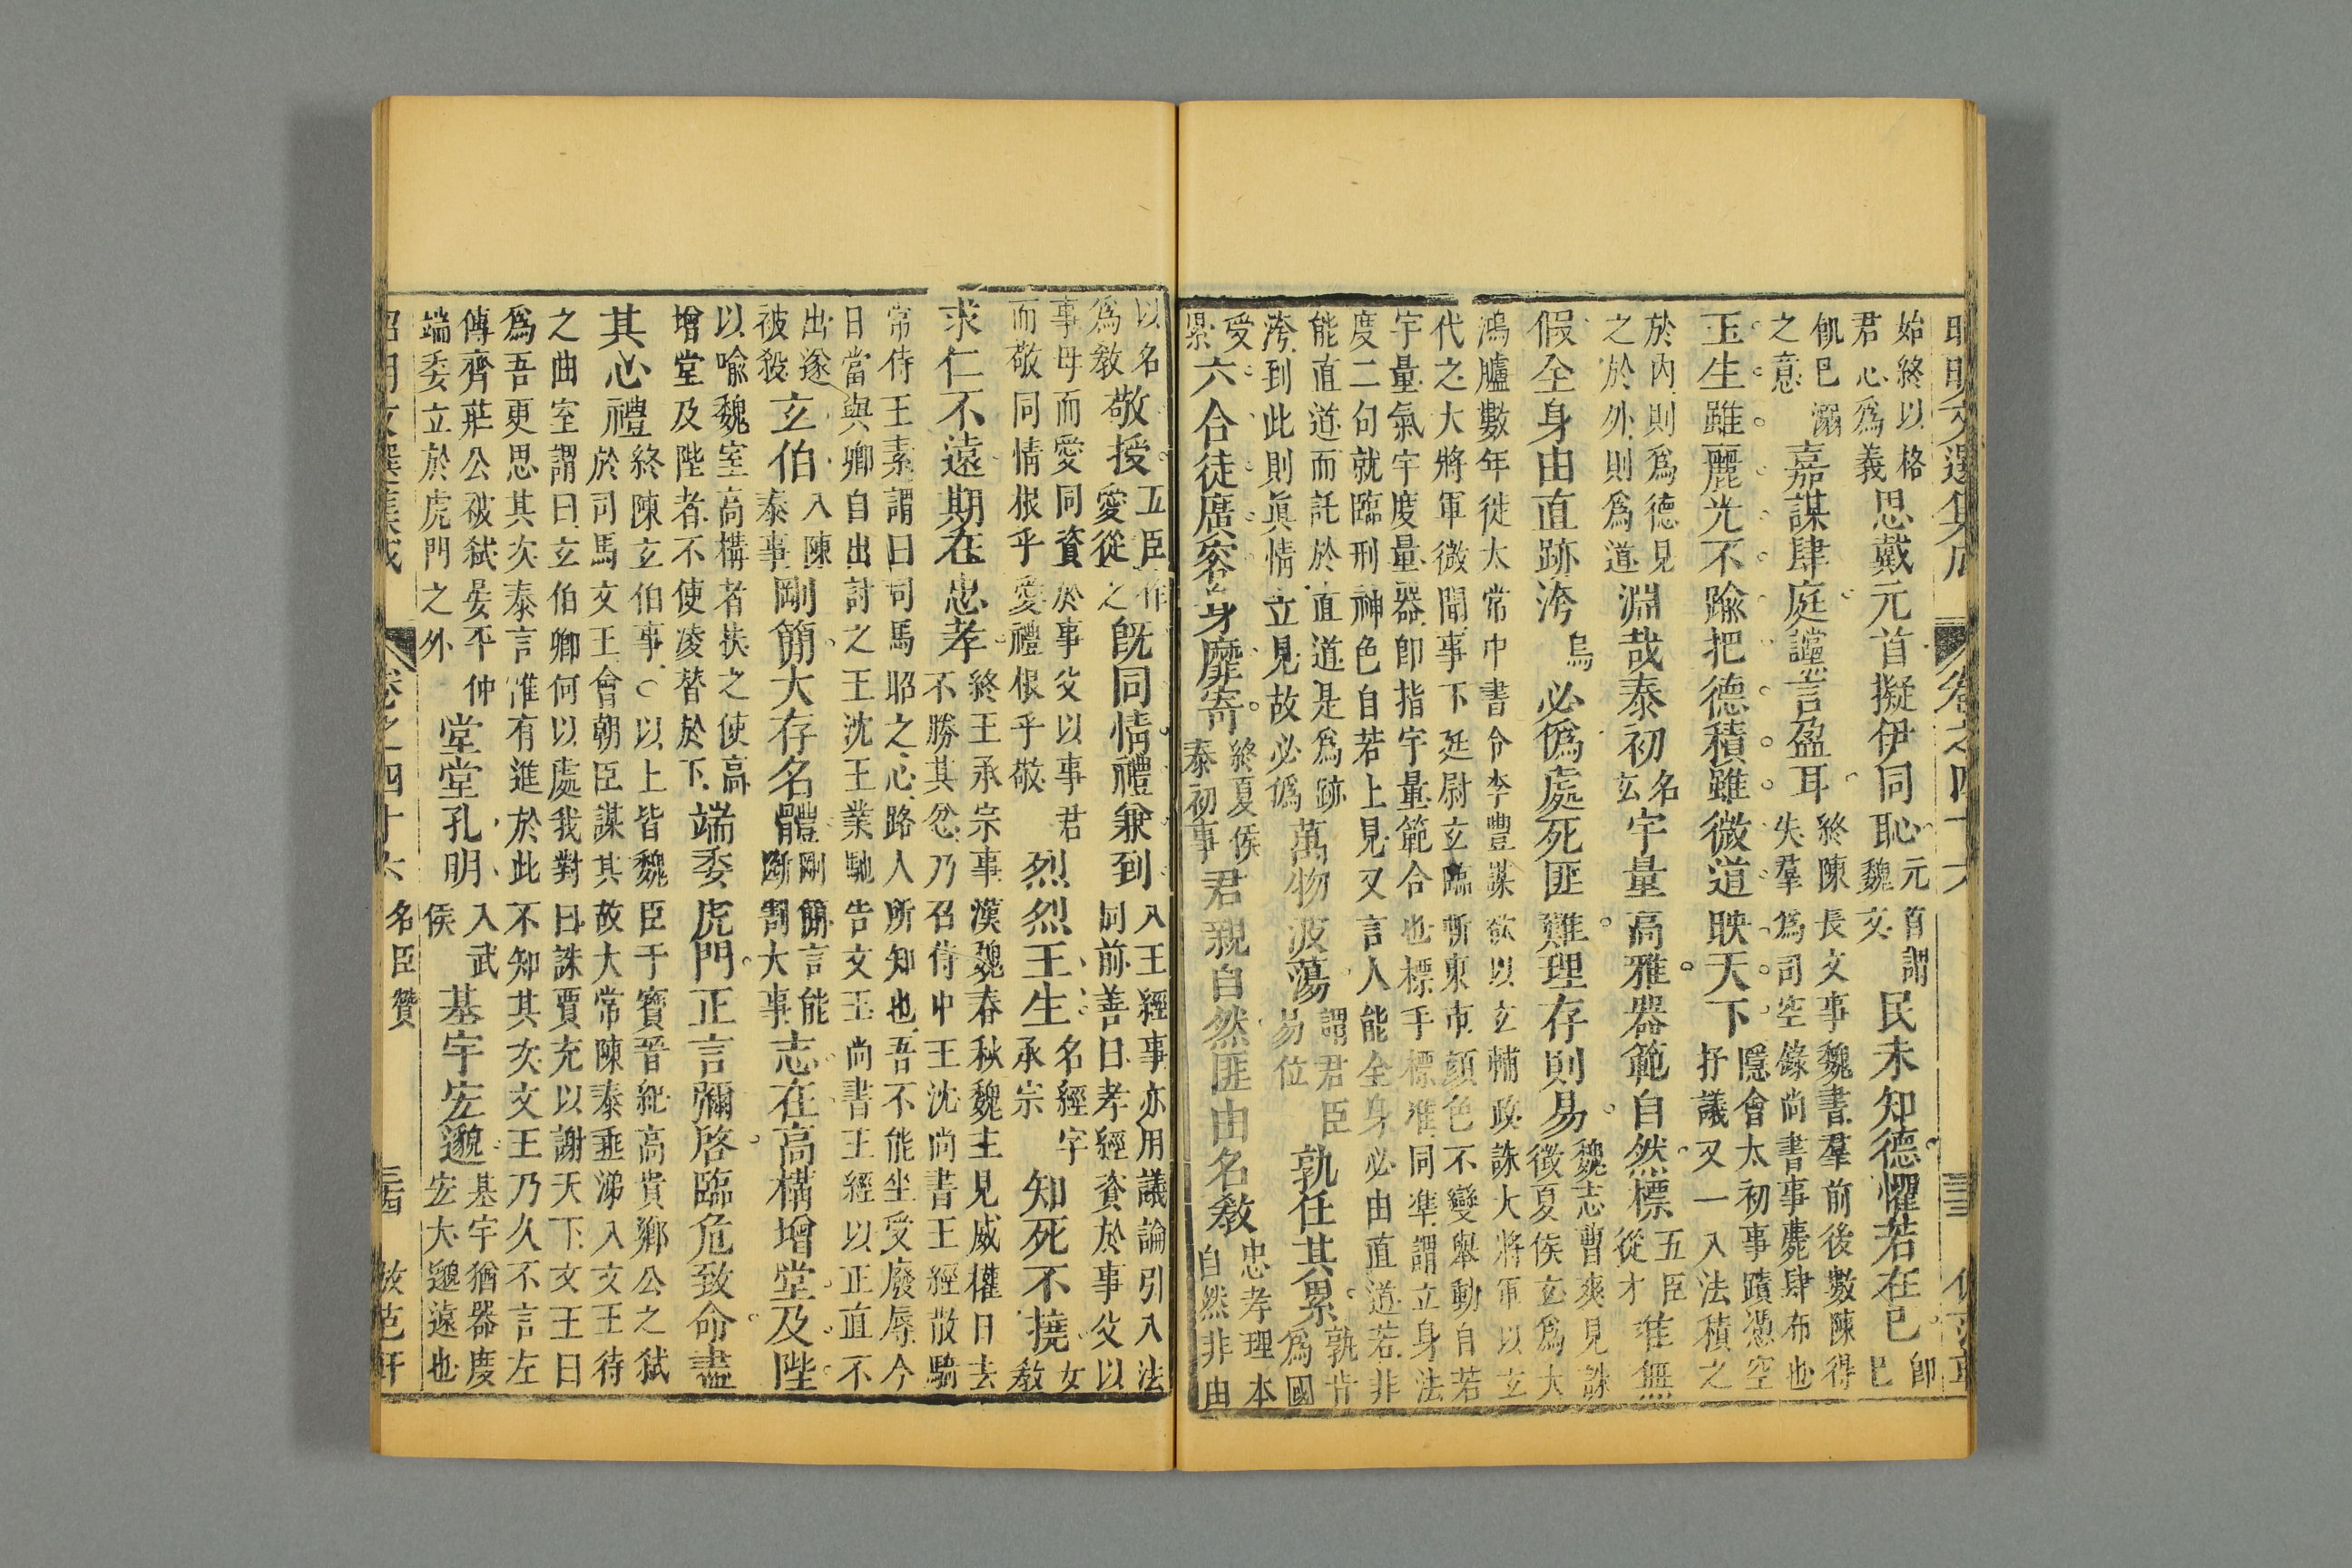 卷之四十六
始終以格君心為義思戴元首擬伊同恥元首謂魏文民未知德懼若在已即已
飢已溺之意嘉謀肆庭讜言盈耳終陳長文事魏書羣前後數陳得失羣為司空錄尚書事薨肆布也
玉生雖麗光不踰把德積雖微道映天下隱會太初事蹟憑空抒議又一入法積之
於內則為德見之於外則為道淵哉泰初名玄宇量高雅器範自然標五臣從才准無
假全身由直跡洿烏必偽處死匪難理存則易魏志曹爽見誅徵夏侯玄為大
鴻臚數年徙太常中書令李豐謀欲以玄輔政誅大將軍以玄
代之大將軍微聞事下廷尉玄臨斬東市顏色不變舉動自若
宇量氣宇度量器即指宇量範合也標手標准同準謂立身法
度二句就臨刑神色自若上見又言人能全身必由直道若非
能直道而託於直道是為跡洿到此則真情立見故必偽萬物波蕩謂君臣易位孰任其累孰肯為國
受累六合徒廣容身靡寄終夏侯泰初事君親自然匪由名教忠孝理本自然非由
以名為教敬授五臣作愛從之既同情禮兼到入王經事亦用議論引入法同前善曰孝經資於事父以
事母而愛同資於事父以事君而敬同情根乎愛禮根乎敬烈烈王生名經字承宗知死不撓女教
求仁不遠期在忠孝終王承宗事漢魏春秋魏主見威權日去不勝其忿乃召侍中王沈尚書王經散騎
常侍王素謂曰司馬昭之心路人所知也吾不能坐受廢辱今
日當與卿自出討之王沈王業馳告文王尚書王經以正直不
出遂被殺玄伯入陳泰事剛簡大存名體剛簡言能斷割大事志在高構增堂及陛
以喻魏室高構者扶之使高增堂及陛者不使凌替於下端委虎門正言彌啓臨危致命盡
其心禮終陳玄伯事○以上皆魏臣于寶晉紀高貴鄉公之弒於司馬文王會朝臣謀其故大常陳泰垂涕入文王待
之曲室謂曰玄伯卿何以處我對曰誅賈充以謝天下文王曰
為吾更思其次泰言惟有進於此不知其次文王乃久不言左
傳齊莊公被弒晏平仲端委立於虎門之外堂堂孔明入武侯基宇宏邈基宇猶器度宏大邈遠也
昭明文選集成 卷之四十六 名臣贊